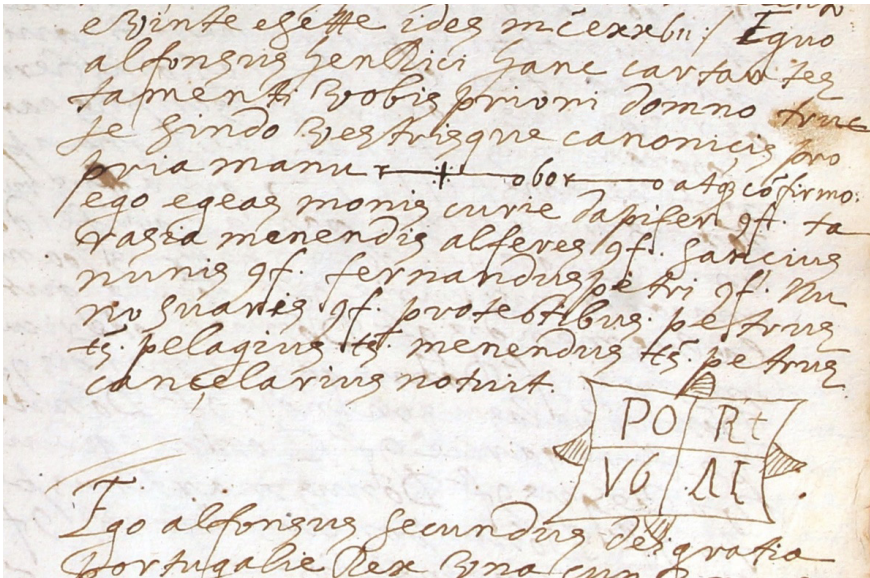 e vinte e sette ides mcexxbii / Eguo
alfonsus Henrrici hanc cartan tes
tamenti vobis priori domno truc
te sindo vestrisque canonicis pro
pria manu r + obor o atq cõfirmo:
ego egeas monis curie dapifer qf. ta
rasia menendis alferes qf. sancius
nunis qf. fernandus petri qf. nu
no suaris qf. pro testibus. petrus
ts. pelagius ts. menendus ts. petrus
cancelarius notuit.
PO Rt
VG AI
Ego alfonsus secundus dei gratia
portugalie Rex vna cun